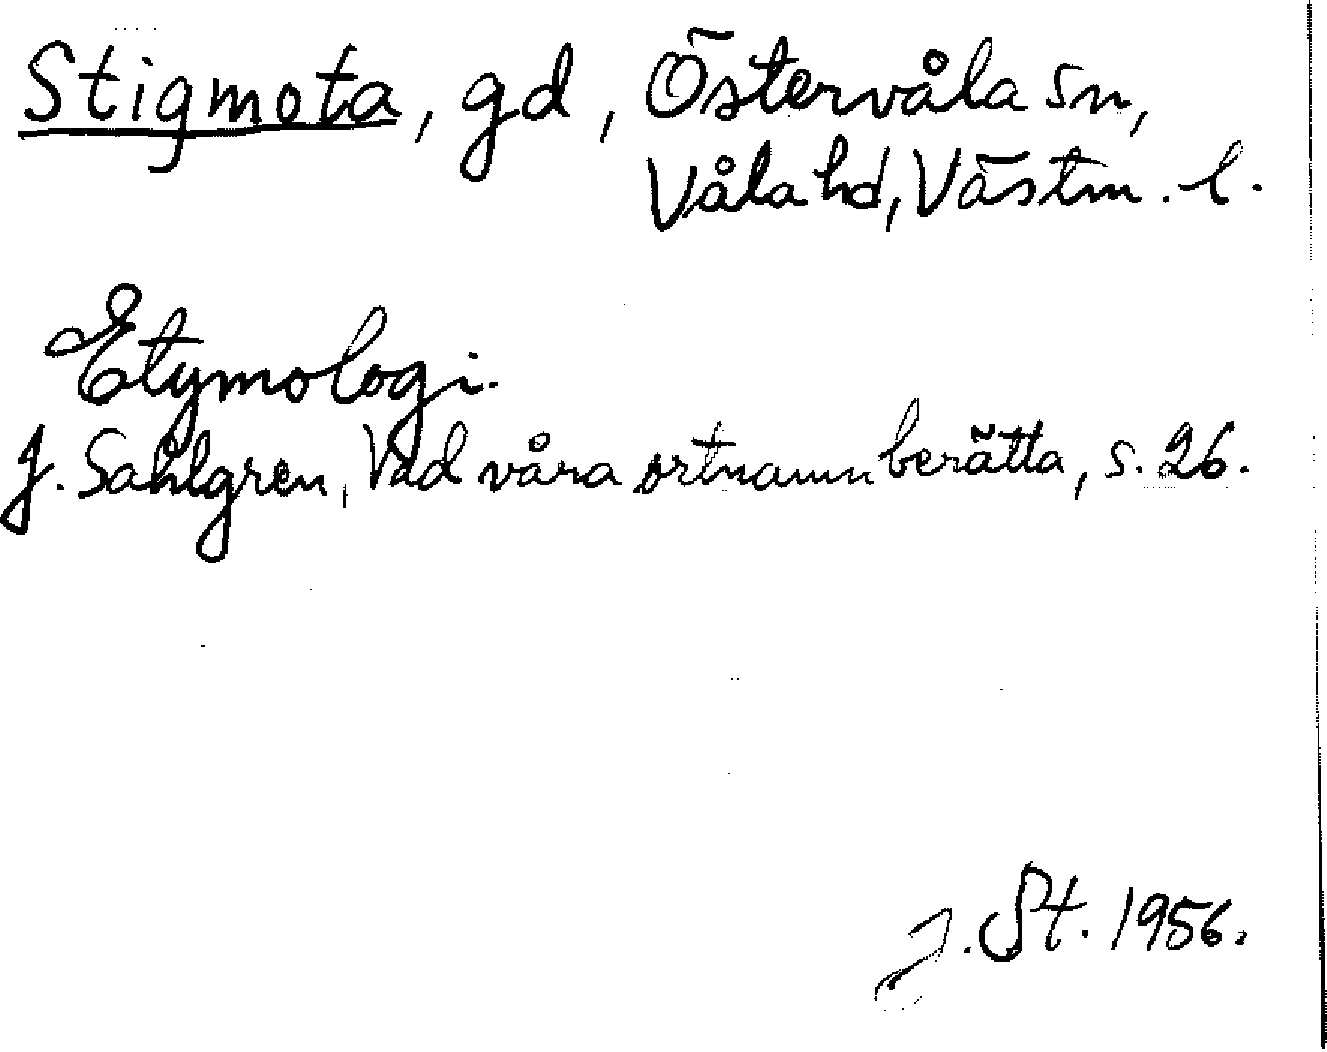 Stigmota, gd, Östervåla sn,
Våla hd, Västm. l.
Etymologi.
J. Sahlgren, Vad våra ortnamn berätta, s. 26.
J. St. 1956.